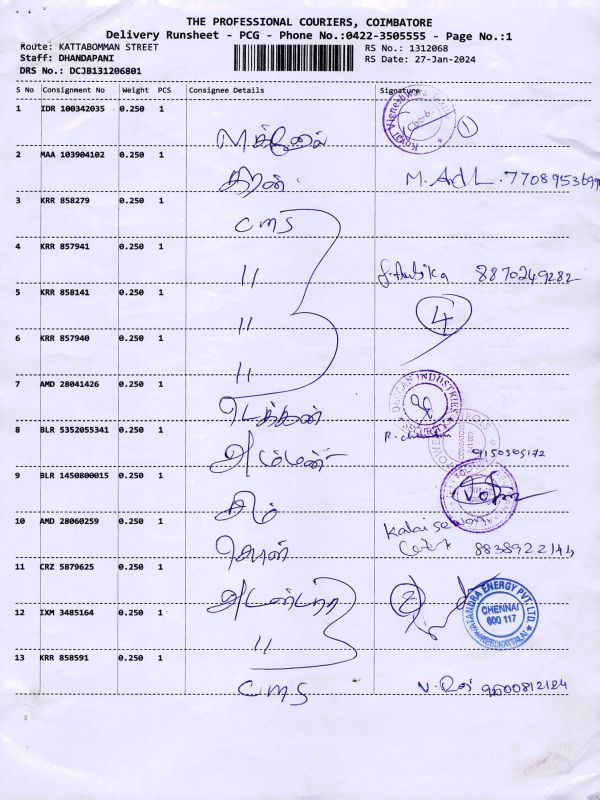 THE PROFESSIONAL COURIERS, COIMBATORE
Delivery Runsheet - PCG - Phone No.:0422-3505555 - Page No.:1
Route: KATTABOMMAN STREET
RS No.: 1312068
Staff: DHANDAPANI
RS Date: 27-Jan-2024
DRS No.: DCJB131206801
S No Consignment No Weight PCS Consignee Details Signature
1 IDR 100342035 0.250 1
1
2 MAA 103904102 0.250 1
M.
3 KRR 858279 0.250 1
CMS
4 KRR 857941 0.250 1
11
8870249282
5 KRR 858141 0.250 1
11
4
6 KRR 857940 0.250 1
11
7 AMD 28041426 0.250 1
INDUSTRIES
8 BLR 5352055341 0.250 1
9 BLR 1450800015 0.250 1
10 AMD 28060259 0.250 1
8838922144
11 CRZ 5879625 0.250 1
2
ENERGY PVT. LTD.
CHENNAI
600 117
12 IXM 3485164 0.250 1
11
13 KRR 858591 0.250 1
CMS
9500812124